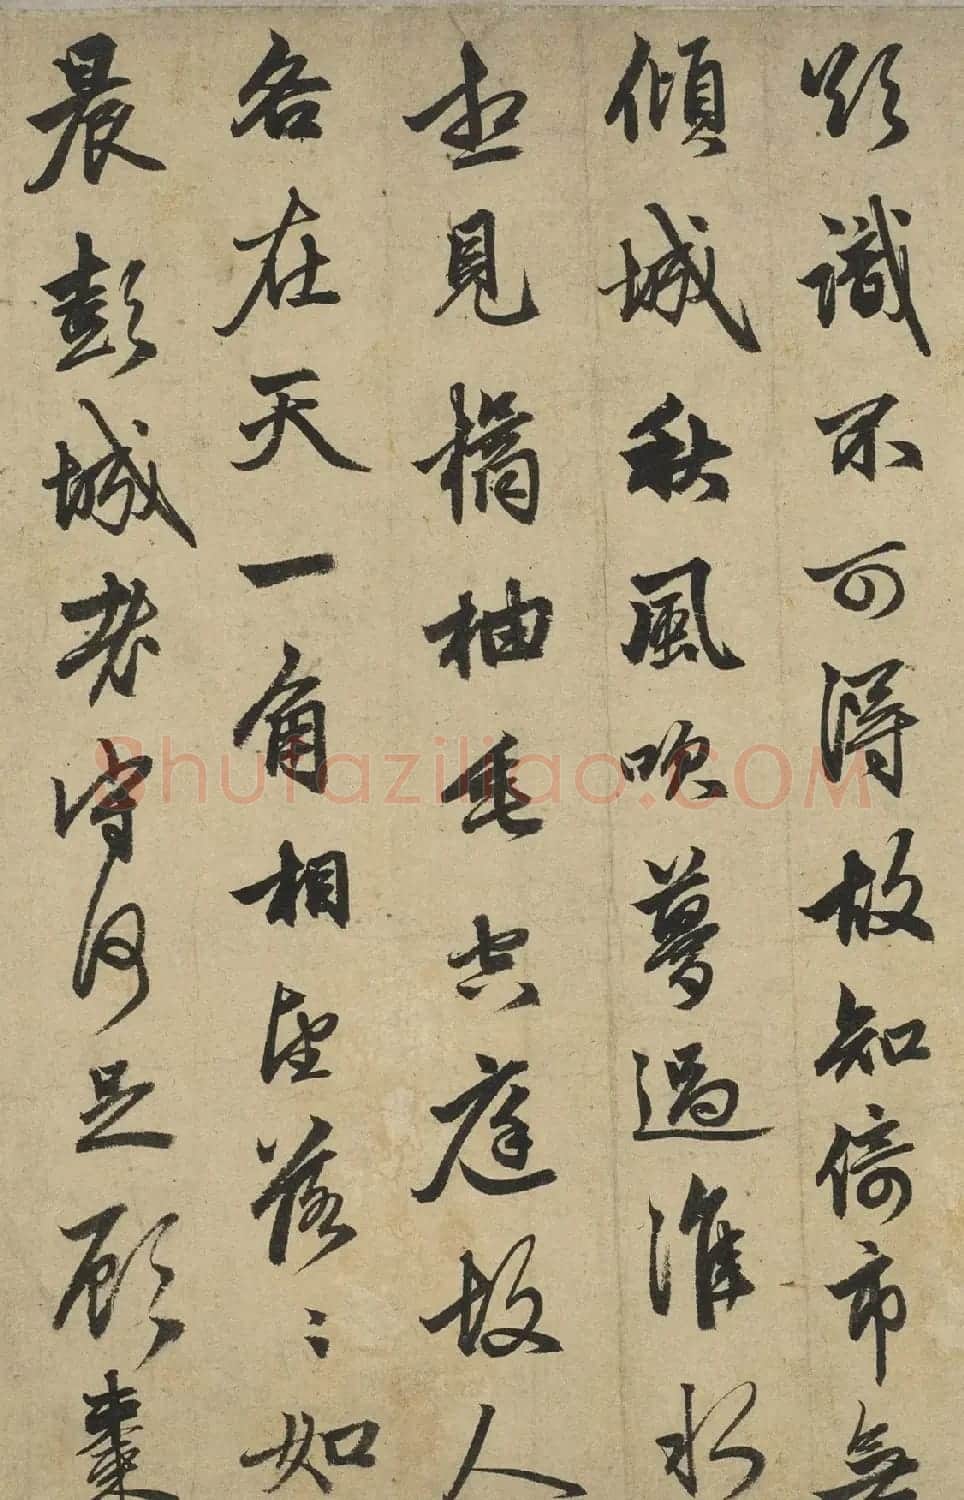 歌識不可得故知倚市無
傾城秋風吹夢過淮水
想見橘柚垂空庭故人
各在天一角相望落〻如
晨彭城老守何足顧棗
shufaziliao.COM